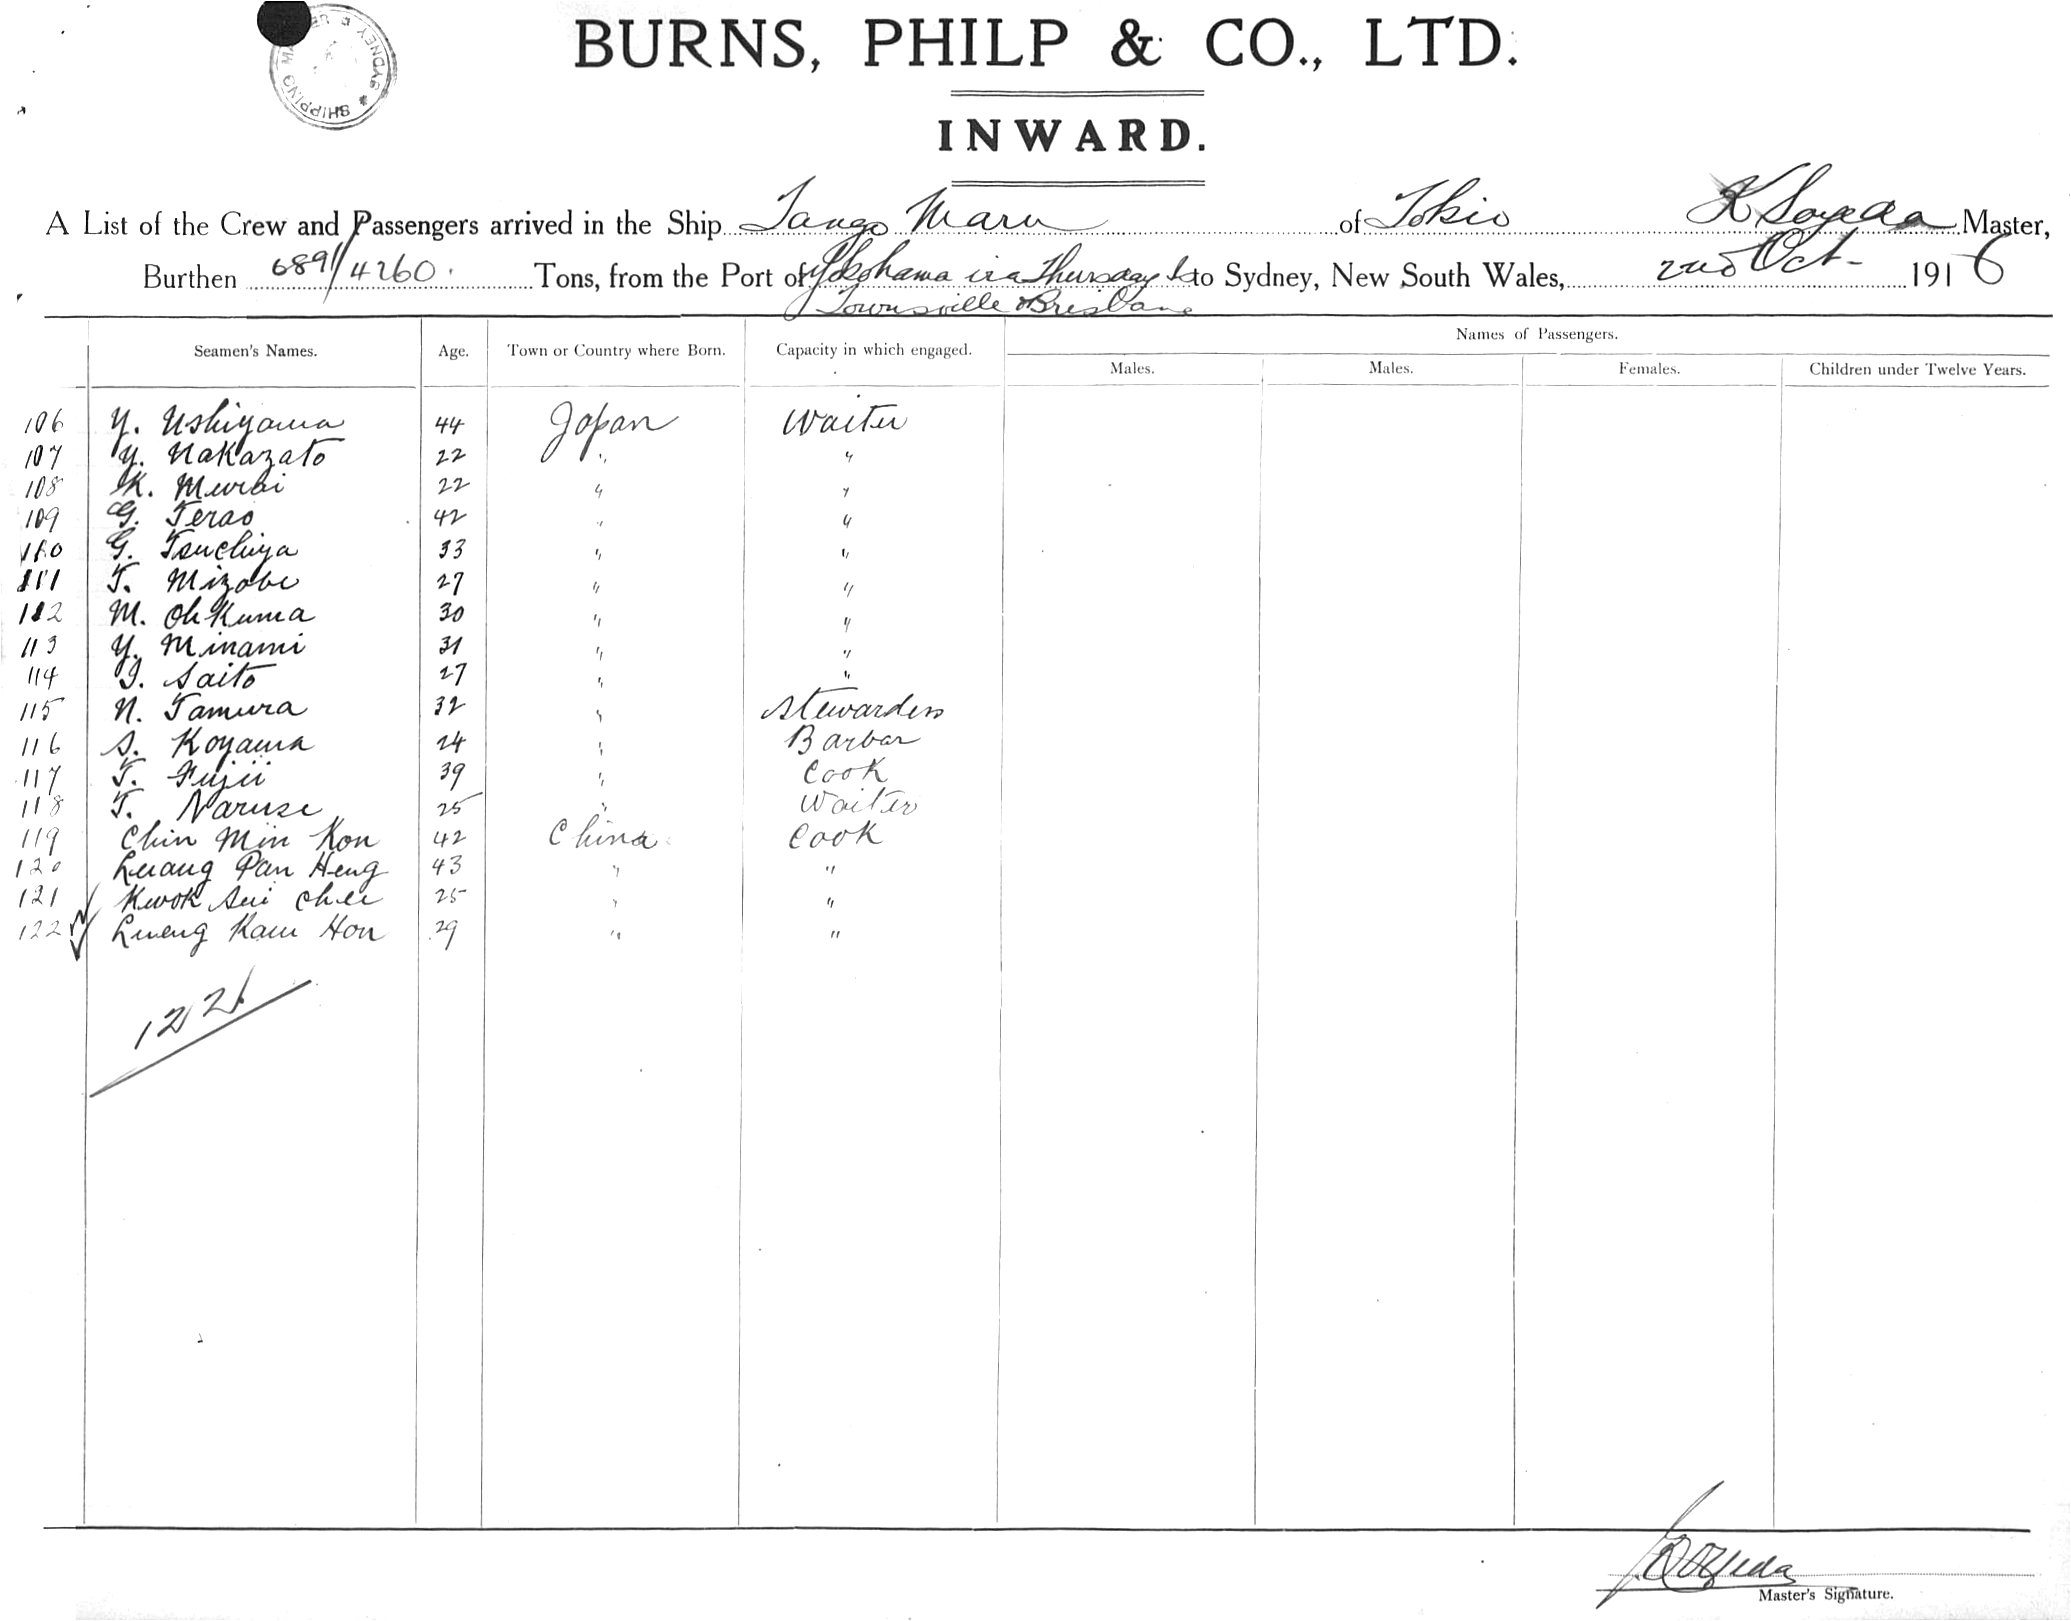 SHIPPING MASTER SYDNEY
BURNS, PHILP & CO., LTD.
INWARD.
A List of the Crew and Passengers arrived in the Ship Tango Maru of Tokio K Soyeda Master,
Burthen 6891/4260. Tons, from the Port of Yokohama via Thursday Is to Sydney, New South Wales, 2nd Oct 1916
Townsville & Brisbane
Names of Passengers.
Seamen's Names. Age. Town or Country where Born. Capacity in which engaged. Males. Males. Females. Children under Twelve Years.
106 Y. Ushiyama 44 Japan Waiter
107 Y. Nakazato 22 " "
108 K. Murai 22 " "
109 G. Terao 42 " "
110 G. Tsuchiya 33 " "
111 T. Mizobe 27 " "
112 M. Ohkuma 30 " "
113 Y. Minami 31 " "
114 I. Saito 27 " "
115 N. Tamura 32 " Stewardess
116 S. Koyama 24 " Barbar
117 T. Fujii 39 " Cook
118 T. Naruse 25 " Waiter
119 Chin Min Kon 42 China Cook
120 Leuang Pan Heng 43 " "
121 Kwok Sui Chee 25 " "
122 Leueng Kam Hon 29 " "
122
Master's Signature.